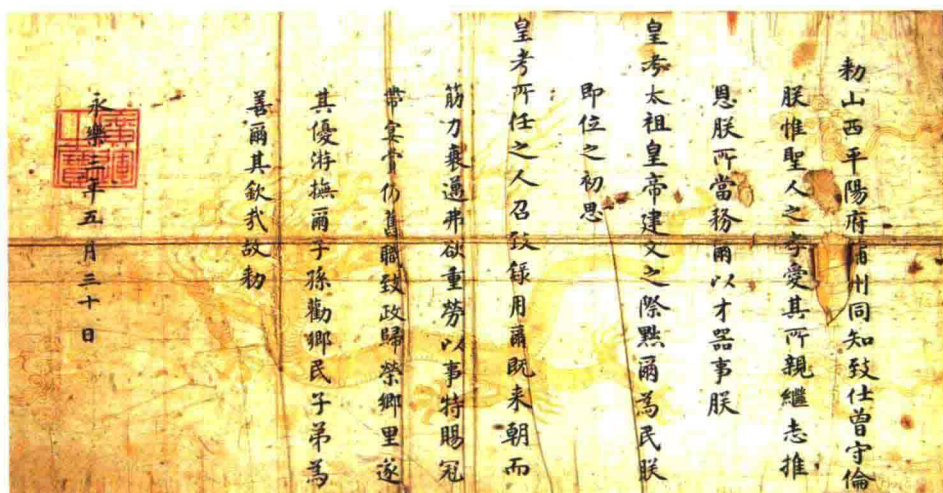 勑山西平陽府蒲州同知致仕曾守倫
朕惟聖人之孝愛其所親繼志推
恩朕所當務爾以才器事朕
皇考太祖皇帝建文之際黜爾為民朕
即位之初思
皇考所任之人召致錄用爾既来朝而
筋力衰邁弗欲重勞以事特賜冠
帶宴賞仍舊職致政歸榮鄉里遂
其優游撫爾子孫勸鄉民子弟為
善爾其欽哉故勑
永樂三年五月三十日